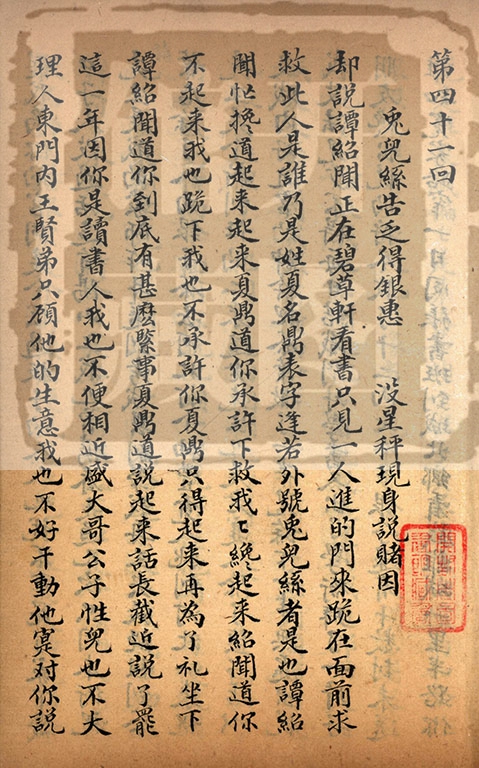 第四十一回
兎兒絲告乏得銀惠　没星秤現身說賭因
却說譚紹聞正在碧草軒看書只見一人進的門來跪在面前求
救此人是誰乃是姓夏名鼎表字逢若外號兎兒絲者是也譚紹
聞忙攙道起來起來夏鼎道你承許下救我我纔起來紹聞道你
不起來我也跪下我也不承許你夏鼎只得起來再為了礼坐下
譚紹聞道你到底有甚麽緊事夏鼎道說起來話長截近說了罷
這一年因你是讀書人我也不便相近盛大哥公子性兒也不大
理人東門内王賢弟只顧他的生意我也不好干動他寔对你說